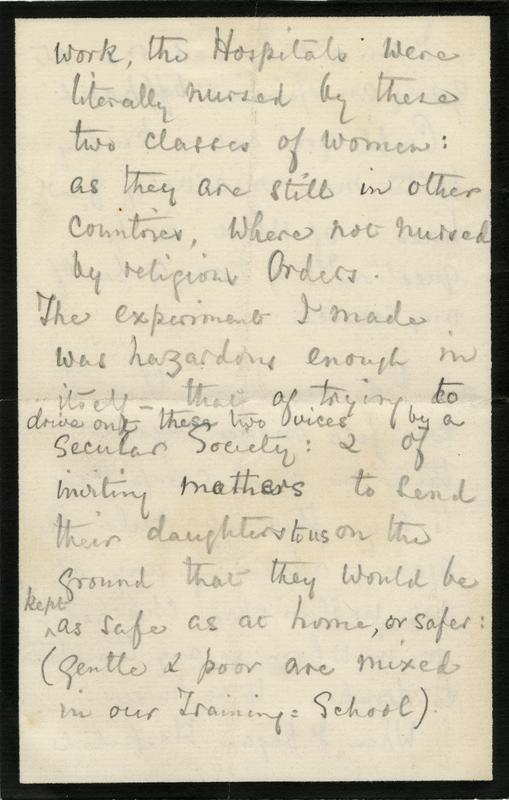 work, the Hospitals were
literally nursed by these
two classes of women:
as they are still in other
countries, where not nursed
by religious Orders.
The experiment I made
was hazardous enough in
itself - that of trying to
drive out these two vices by a
Secular Society: & of
inviting mothers to send
their daughters to us on the
ground that they would be
kept
^as safe as at home, or safer:
(Gentle & poor are mixed
in our Training-School).